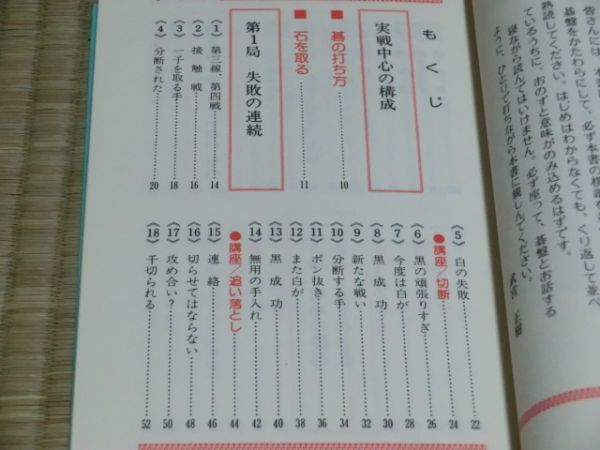 皆さんには、本書
碁盤をかたわらにして、必ず本書の棋譜を
熟読してください。はじめはわからなくても、くり返して並べ
ているうちに、おのずと意味がのみ込めるはずです。
寝ながら読んではいけません。必ず座って、碁盤とお話する
ように、ひとりで打ちながら本書に親しんでください。
武宮 正樹
もくじ
実戦中心の構成
■碁の打ち方 10
■石を取る 11
第1局 失敗の連続
《1》第三線、第四戦 14
《2》接触戦 16
《3》一子を取る手 18
《4》分断された 20
《5》白の失敗 22
●講座／切断 24
《6》黒の頑張りすぎ 26
《7》今度は白が 28
《8》黒成功 30
《9》新たな戦い 32
《10》分断する手 34
《11》ポン抜き 36
《12》また白が 38
《13》黒成功 40
《14》無用の手入れ 42
●講座／追い落とし 44
《15》連絡 46
《16》切らせてはならない 48
《17》攻め合い？ 50
《18》千切られる 52